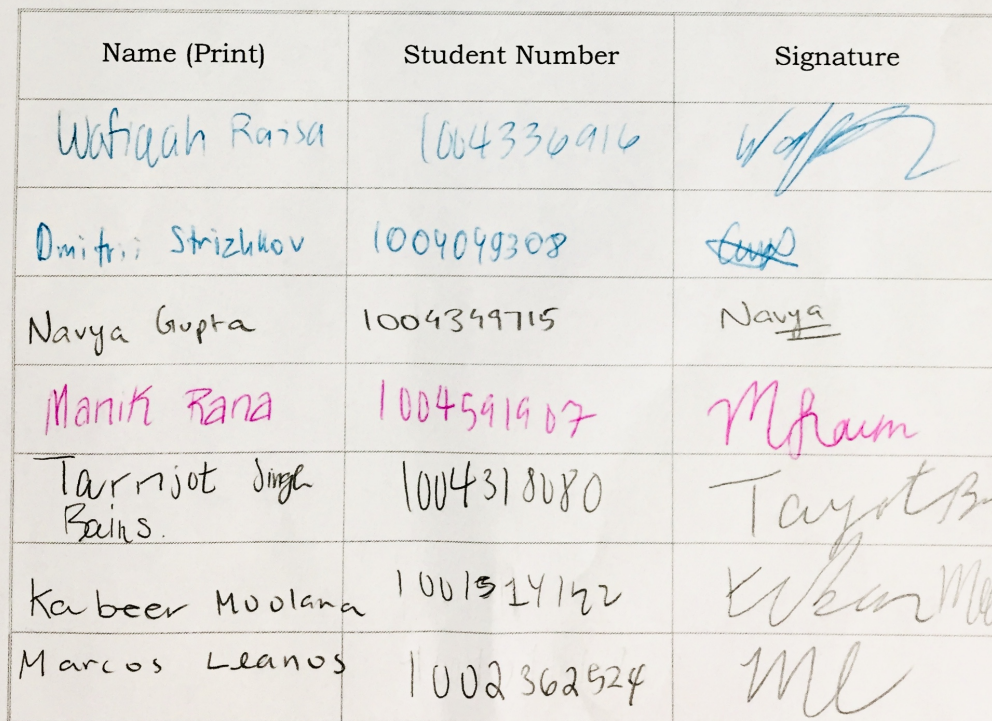 Name (Print) Student Number Signature
Wafiqah Raisa 1004336916
Dmitrii Strizhkov 1004049308
Navya Gupta 1004349715 Navya
Manik Rana 1004591907
Tarnjot Singh 1004318080
Bains.
Kabeer Moolana
Marcos Leanos 1002362524 ML